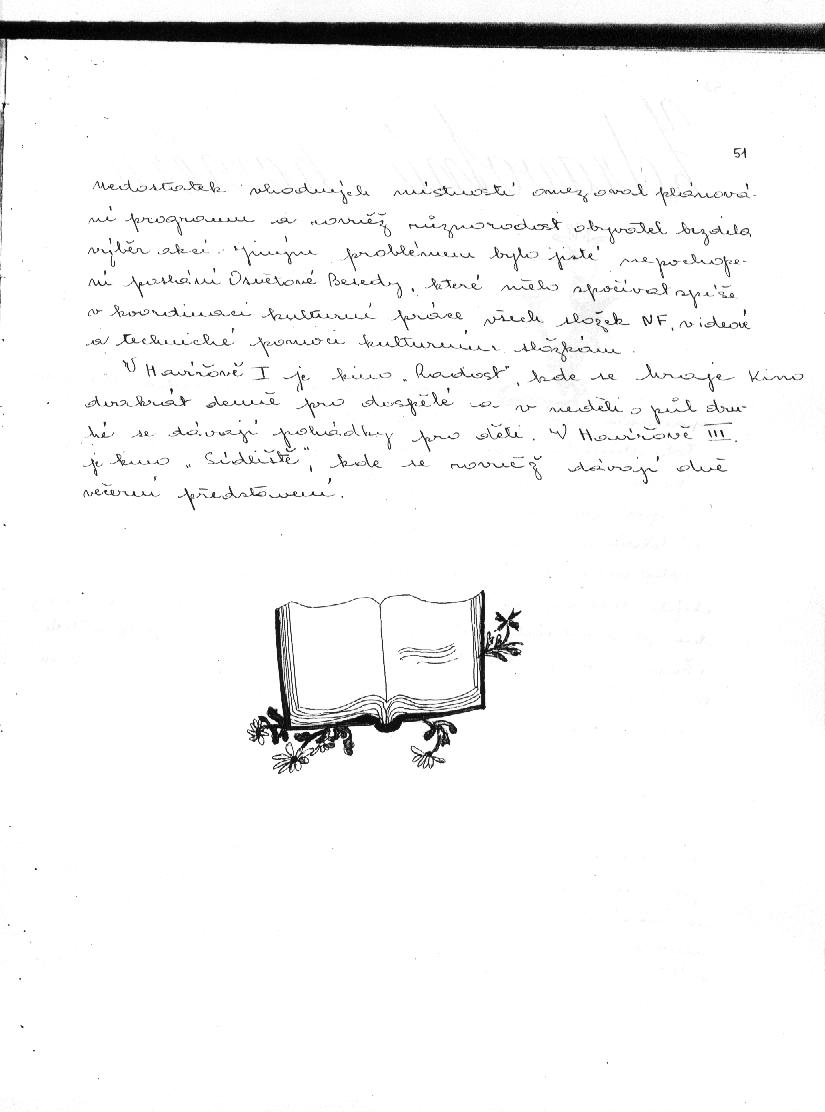 51
Nedostatek vhodných místností omezoval plánová-
ní programu a rovněž různorodost obyvatel brzdila
výběr akcí. Jiným problémem bylo jisté nepochope-
ní poslání Osvětové Besedy, které mělo spočívat spíše
v koordinaci kulturní práce všech složek NF, v ideové
a technické pomoci kulturním složkám.
V Havířově I je kino „Radost", kde se hraje Kino
dvakrát denně pro dospělé a v neděli o půl dru-
hé se dávají pohádky pro děti. V Havířově III.
je kino „Sídliště", kde se rovněž dávají dvě
večerní představení.